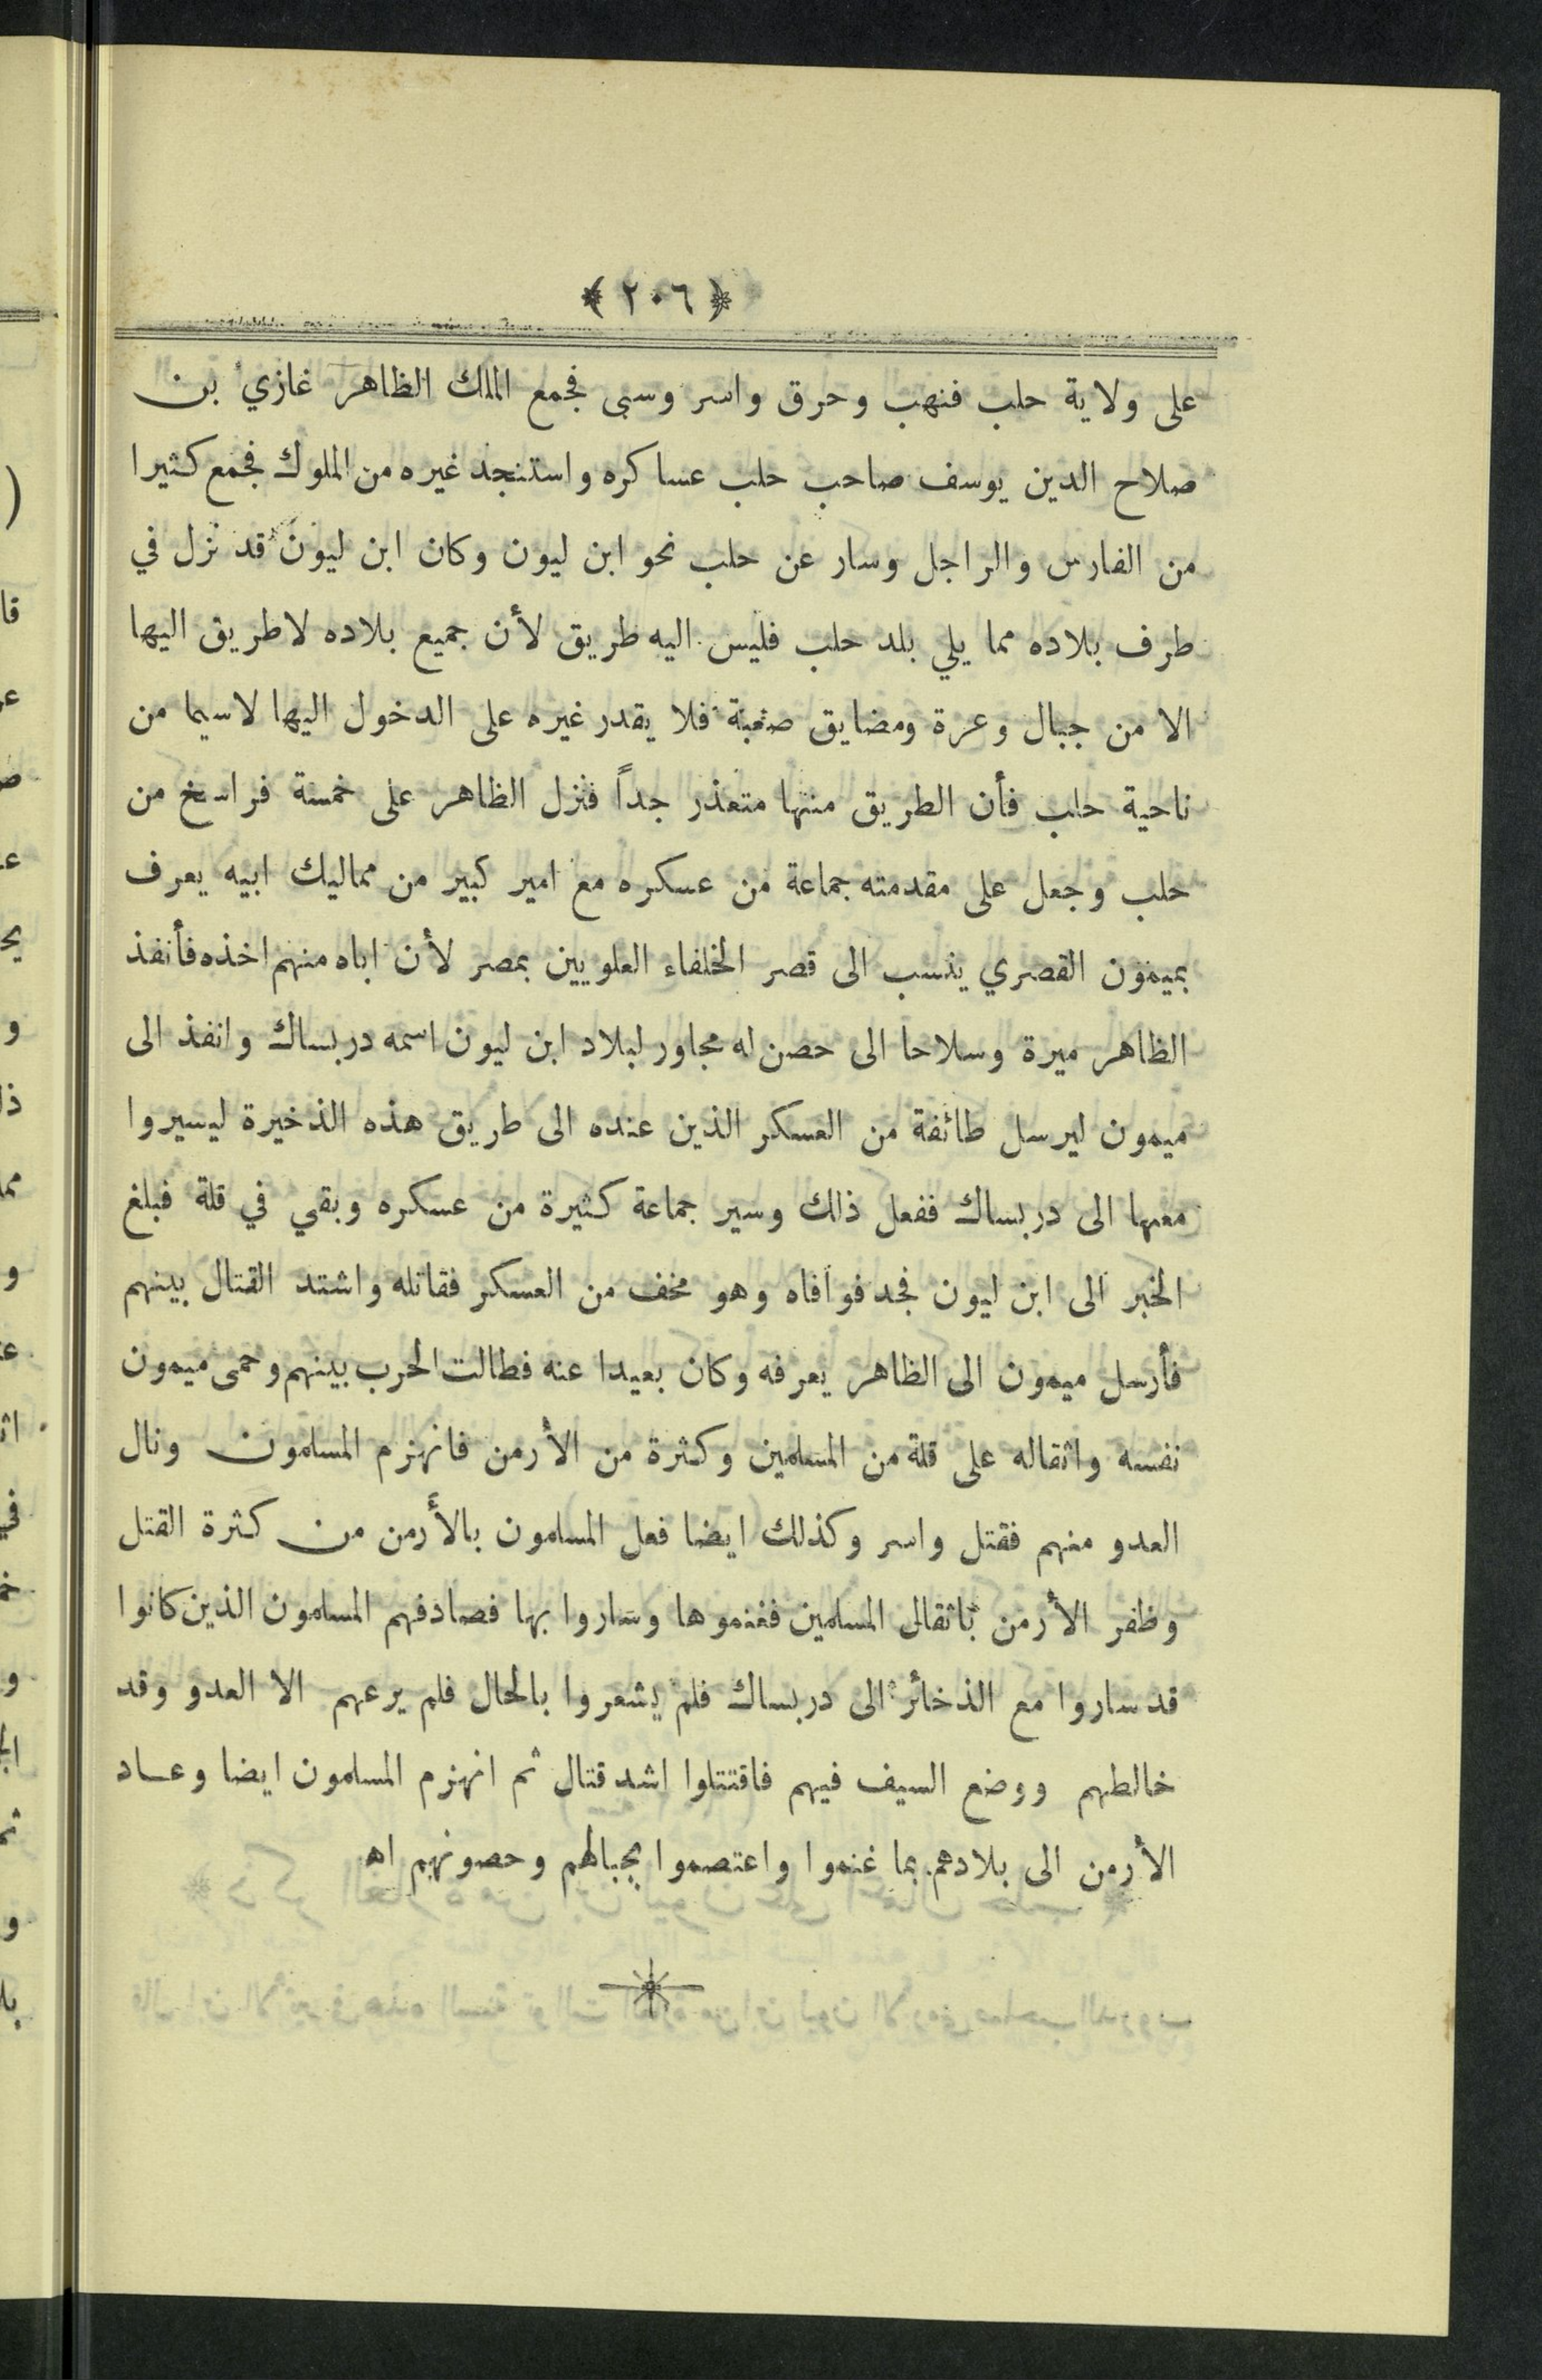 ﴿ ٢٠٦ ﴾
على ولاية حلب فنهب وحرق واسر وسبى فجمع الملك الظاهر غازي بن
صلاح الدين يوسف صاحب حلب عساكره واستنجد غيره من الملوك فجمع كثيرا
من الفارس والراجل وسار عن حلب نحو ابن ليون وكان ابن ليون قد نزل في
طرف بلاده مما يلي بلد حلب فليس اليه طريق لأن جميع بلاده لا طريق اليها
الا من جبال وعرة ومضايق صعبة فلا يقدر غيره على الدخول اليها لاسيما من
ناحية حلب فأن الطريق منها متعذر جداً فنزل الظاهر على خمسة فراسخ من
حلب وجعل على مقدمته جماعة من عسكره مع امير كبير من مماليك ابيه يعرف
بميمون القصري ينسب الى قصر الخلفاء العلويين بمصر لأن اباه منهم اخذه فأنفذ
الظاهر ميرة وسلاحا الى حصن له مجاور لبلاد ابن ليون اسمه دربساك وانفذ الى
ميمون ليرسل طائفة من العسكر الذين عنده الى طريق هذه الذخيرة ليسيروا
معها الى دربساك ففعل ذلك وسير جماعة كثيرة من عسكره وبقي في قلة فبلغ
الخبر الى ابن ليون فجد فوافاه وهو مخف من العسكر فقاتله واشتد القتال بينهم
فأرسل ميمون الى الظاهر يعرفه وكان بعيدا عنه فطالت الحرب بينهم وحمى ميمون
نفسه واثقاله على قلة من المسلمين وكثرة من الأرمن فانهزم المسلمون ونال
العدو منهم فقتل واسر وكذلك ايضا فعل المسلمون بالأرمن من كثرة القتل
وظفر الأرمن باثقال المسلمين فغنموها وساروا بها فصادفهم المسلمون الذين كانوا
قد ساروا مع الذخائر الى دربساك فلم يشعروا بالحال فلم يرعهم الا العدو وقد
خالطهم ووضع السيف فيهم فاقتتلوا اشد قتال ثم انهزم المسلمون ايضا وعاد
الأرمن الى بلادهم بما غنموا واعتصموا بجبالهم وحصونهم اه